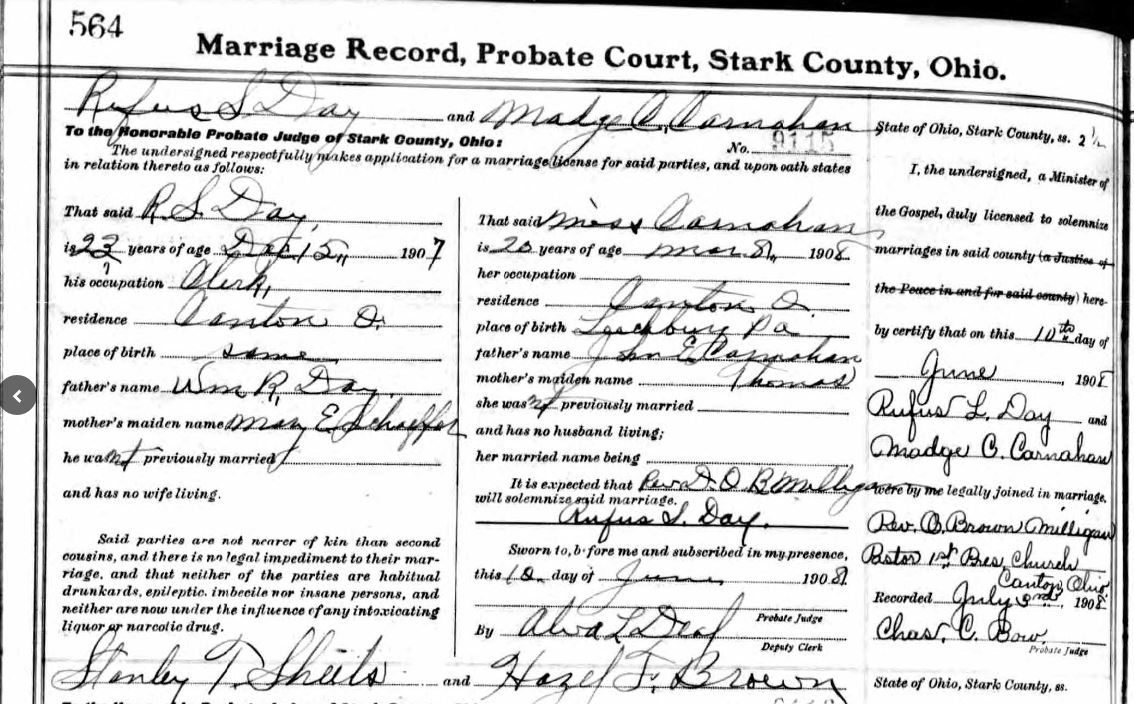 564
Marriage Record, Probate Court, Stark County, Ohio.
Rufus S Day and Madge C. Carnahan
To the Honorable Probate Judge of Stark County, Ohio:
No. 9115
The undersigned respectfully makes application for a marriage license for said parties, and upon oath states
in relation thereto as follows:
That said R. S. Day,
is 23 years of age Dec 15, 1907
his occupation Clerk,
residence Canton O.
place of birth same
father's name Wm R. Day
mother's maiden name Mary E Schaffer
he was not previously married
and has no wife living.
Said parties are not nearer of kin than second
cousins, and there is no legal impediment to their mar-
riage, and that neither of the parties are habitual
drunkards, epileptic, imbecile nor insane persons, and
neither are now under the influence of any intoxicating
liquor or narcotic drug.
That said Miss Carnahan
is 20 years of age Mar 8, 1908
her occupation
residence Canton O.
place of birth Leechburg Pa
father's name John E Carnahan
mother's maiden name Thomas
she was not previously married
and has no husband living;
her married name being
It is expected that Rev. O B Milligan
will solemnize said marriage.
Rufus S. Day.
Sworn to, before me and subscribed in my presence,
this 10 day of June, 1908.
Probate Judge
By Alva L Deal
Deputy Clerk
State of Ohio, Stark County, ss. 2 1/2
I, the undersigned, a Minister of
the Gospel, duly licensed to solemnize
marriages in said county (a Justice of
the Peace in and for said county) here-
by certify that on this 10th day of
June, 1908
Rufus L. Day and
Madge C. Carnahan
were by me legally joined in marriage.
Rev. O. Brown Milligan
Pastor 1st Pres. Church
Canton, Ohio
Recorded July 3rd 1908
Chas. C. Bow.
Probate Judge
Stanley T. Sheils and Hazel F. Brown
State of Ohio, Stark County, ss.